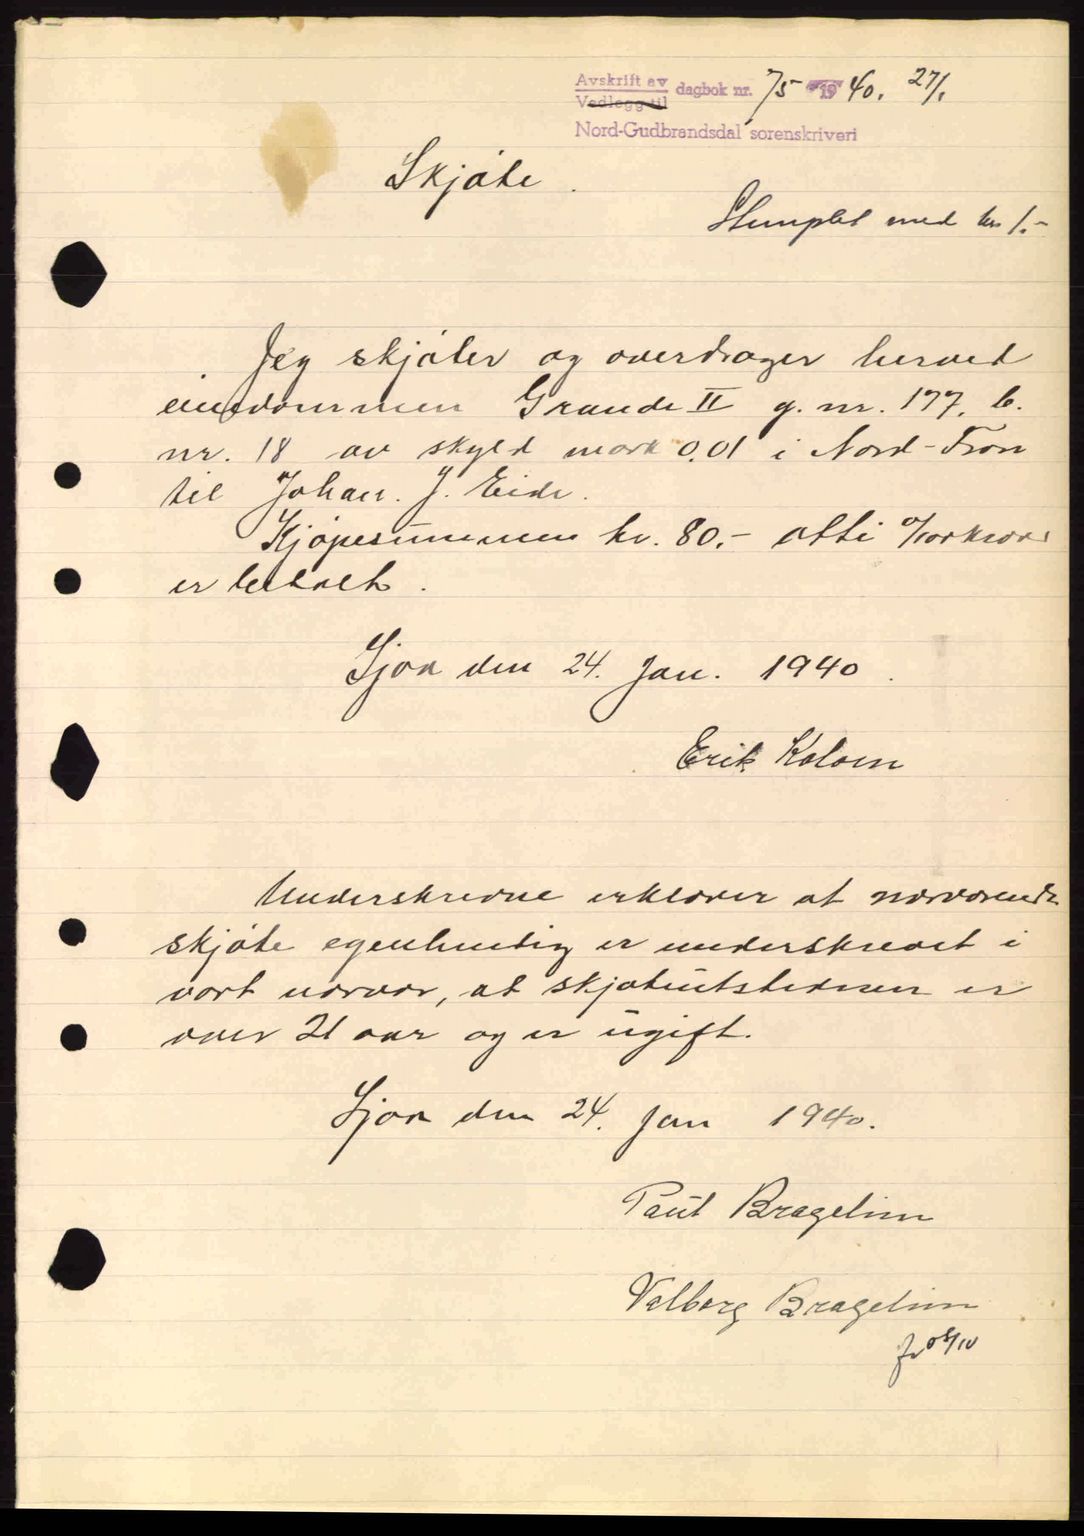 Avskrift av
Vedlegg til dagbok nr. 75 1940. 27/1
Nord-Gudbrandsdal sorenskriveri
Skjøte.
Stemplet med kr 1.-
Jeg skjøter og overdrager herved
eiendommen Grande II g. nr. 177, b.
nr. 18 av skyld mark 0,01 i Nord-Fron
til Johan. J. Eide.
Kjøpesummen kr. 80.- otti
er betalt.
Sjoa den 24. Jan. 1940.
Erik Koloen
Underskrevne erklærer at nærværende
skjøte egenhendig er underskrevet i
vort nærvær, at skjøteutstederen er
over 21 aar og er ugift.
Sjoa den 24. Jan 1940.
Paul Bragelien
Valborg Bragelien